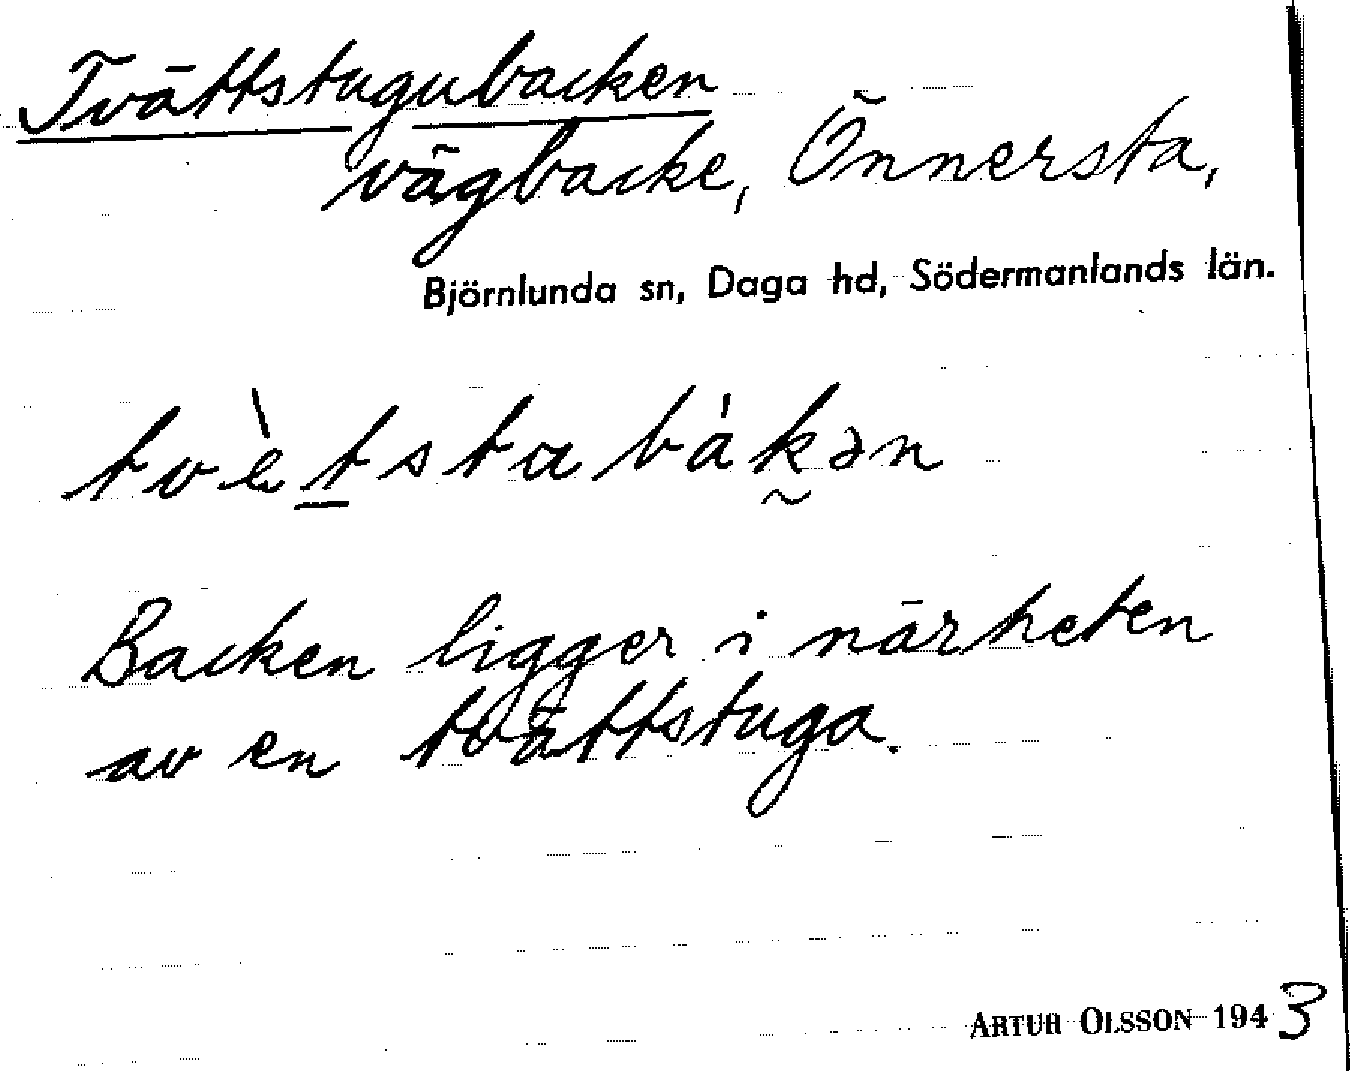 Tvättstugubacken
vägbacke, Önnersta,
Björnlunda sn, Daga hd, Södermanlands län.
tvè̀tstabàkən
Backen ligger i närheten
av en tvättstuga.
ARTUR OLSSON 1943